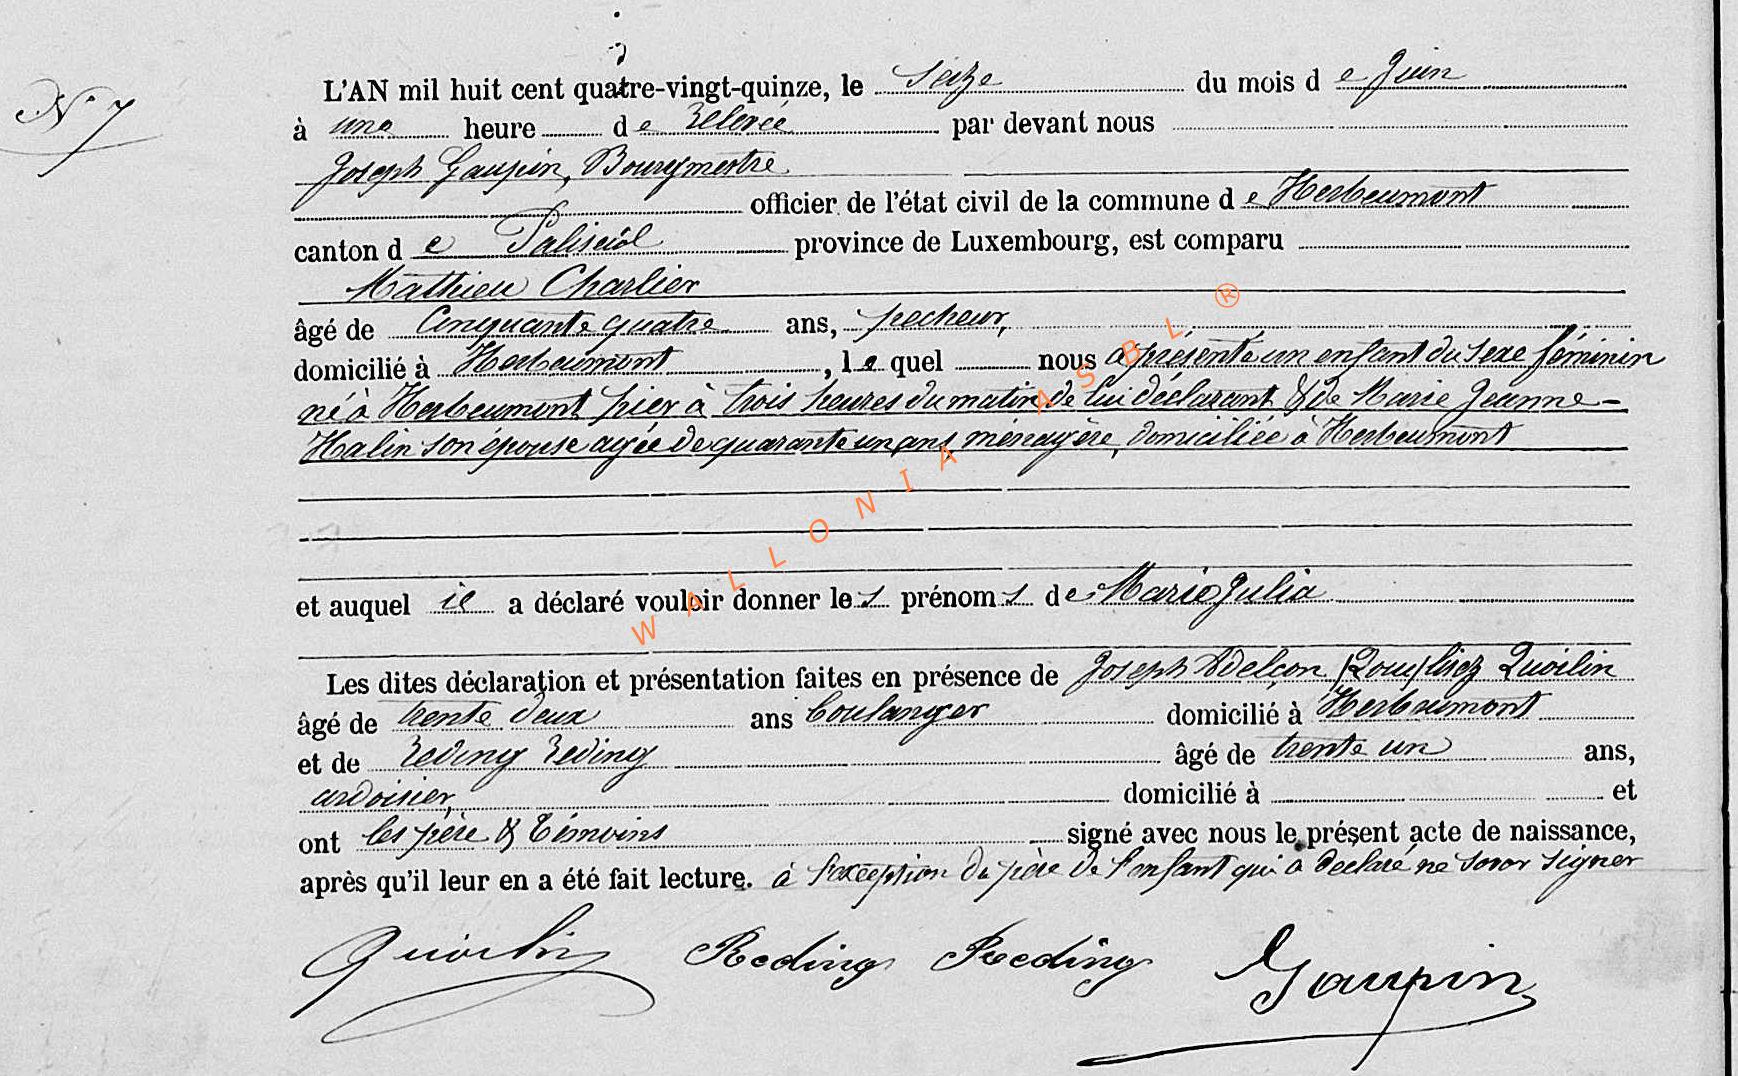 N° 7
L'AN mil huit cent quatre-vingt-quinze, le Seize du mois de Juin
à une heure de relevée par devant nous
Joseph Gaupin, Bourgmestre
officier de l'état civil de la commune de Herbeumont
canton de Paliseul province de Luxembourg, est comparu
Mathieu Charlier
âgé de Cinquante quatre ans, pecheur,
domicilié à Herbeumont, le quel nous a présenté un enfant du sexe féminin
né à Herbeumont hier à trois heures du matin de lui déclarant & de Marie Jeanne -
Halin son épouse agée de quarante un ans, ménagère, domiciliée à Herbeumont
et auquel il a déclaré vouloir donner les prénoms de Marie Julia
Les dites déclaration et présentation faites en présence de Joseph lisez Quoilin
âgé de trente deux ans boulanger domicilié à Herbeumont
et de Reding Reding âgé de trente un ans,
ardoisier, domicilié à et
ont les père & témoins signé avec nous le présent acte de naissance,
après qu'il leur en a été fait lecture. à l'exception du père de l'enfant qui a déclaré ne savoir signer
Quoilin Reding Reding Gaupin
WALLONIA ASBL ®